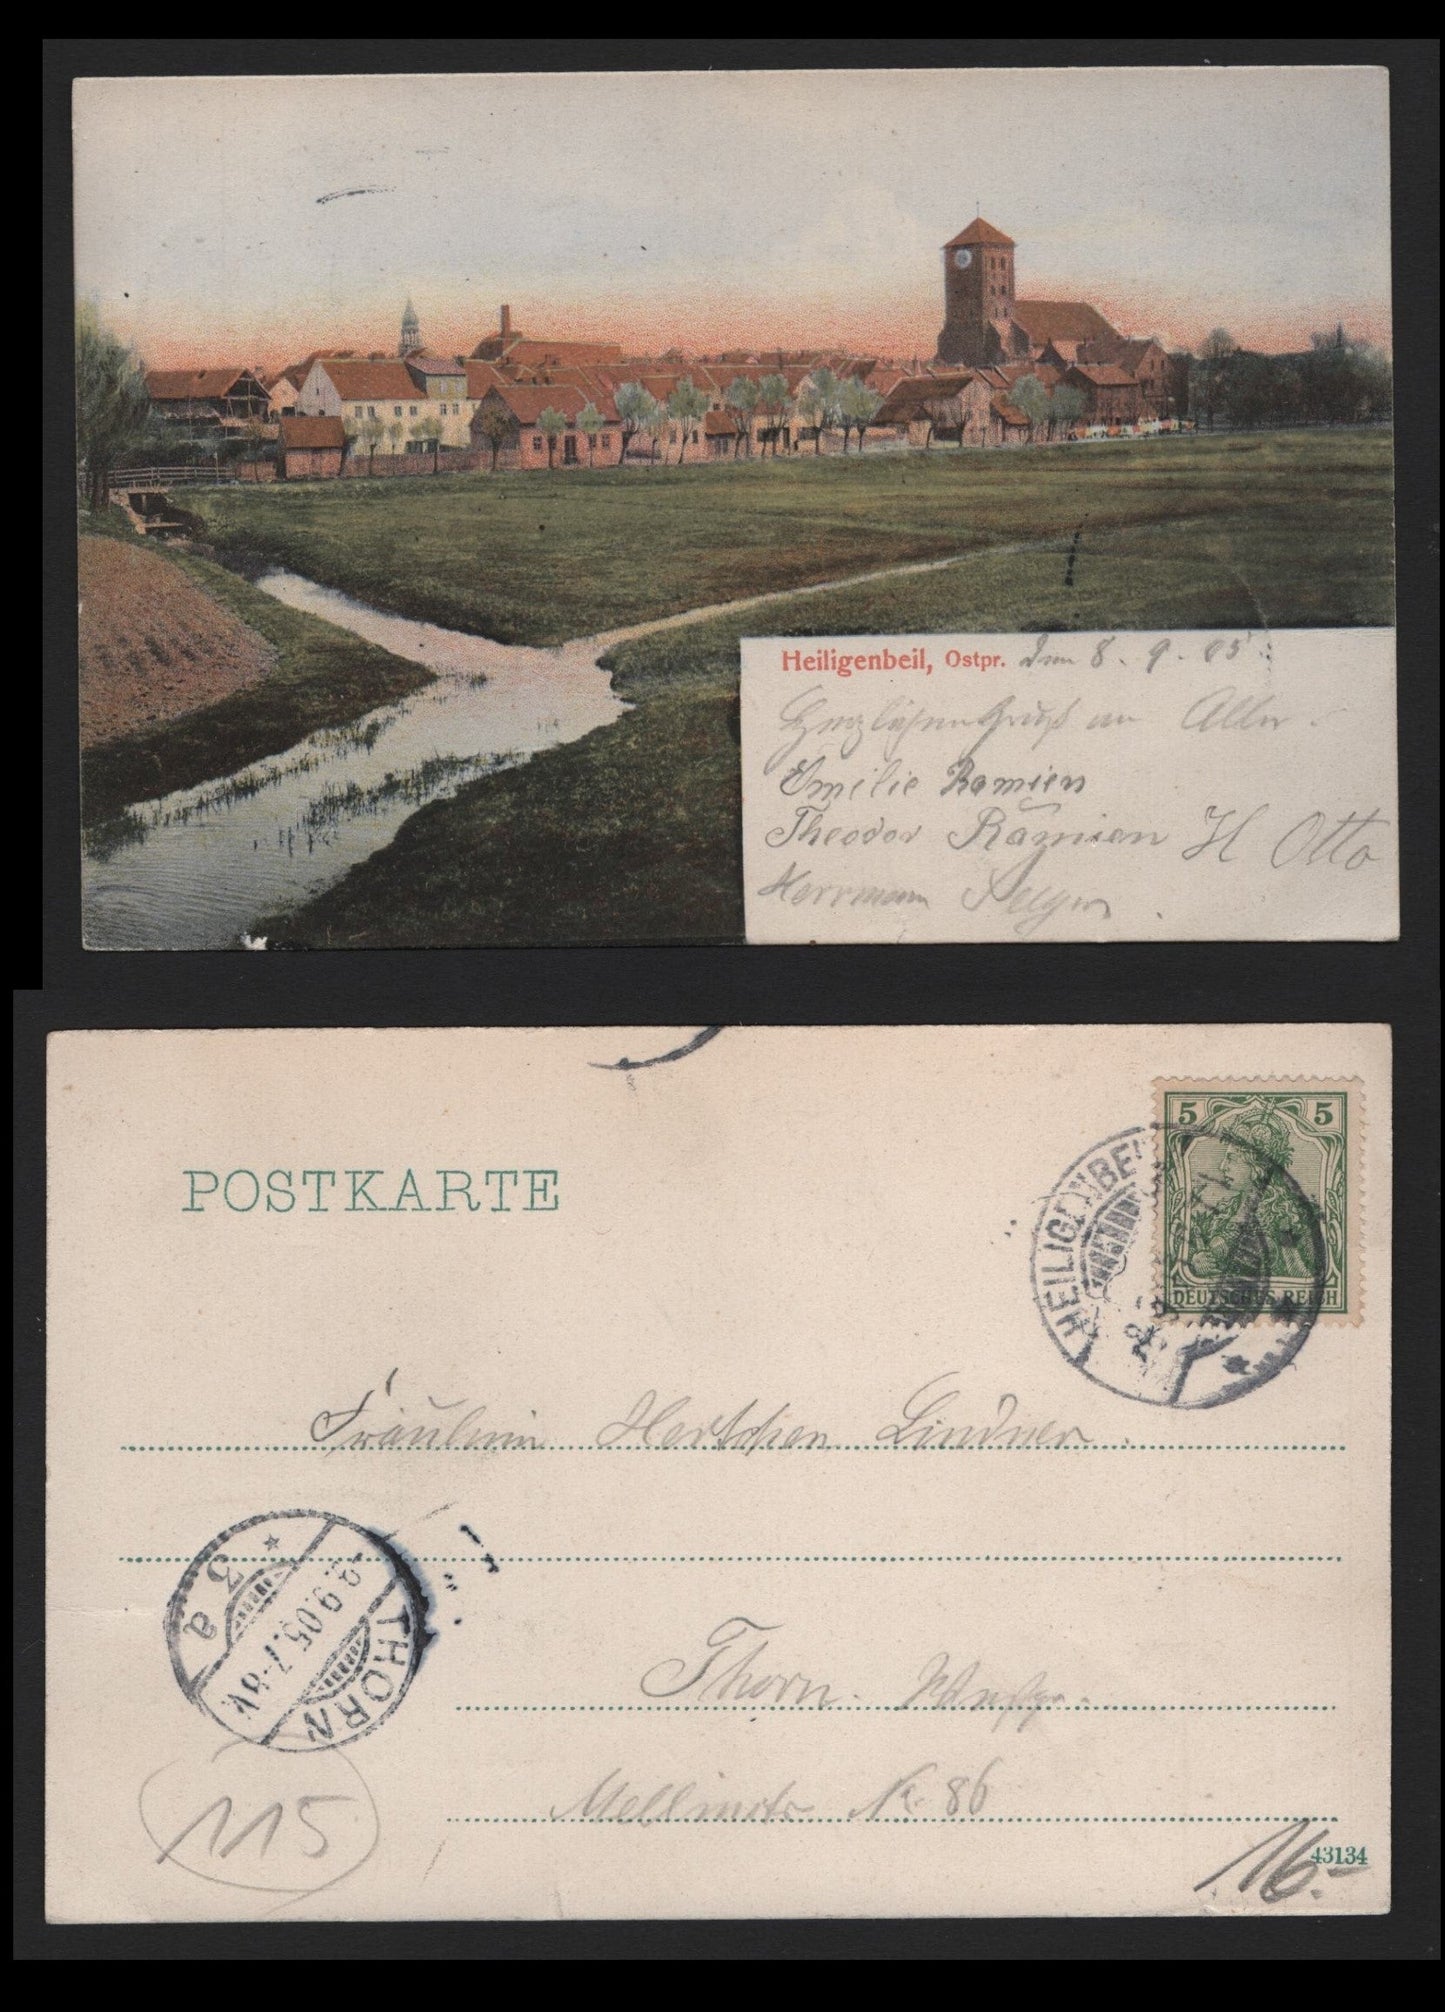 Heiligenbeil, Ostpr. den 8.9.05
Herzlichen Gruß an Alle
Emilie Ramien
Theodor Ramien H Otto
Herrmann
POSTKARTE
5 5
DEUTSCHES REICH
HEILIGENBEIL
Fräulein Lindner.
3 a
9.05.7-8V.
THORN
Thorn. Westpr.
Mellinstr No 86
115
16.-
43134